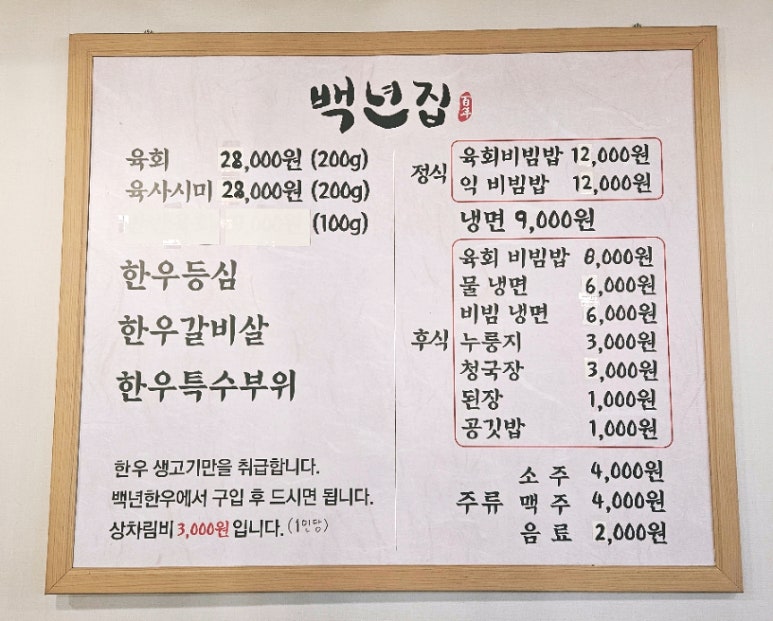 백년집 百年
육회 28,000원 (200g)
육사시미 28,000원 (200g)
(100g)
한우등심
한우갈비살
한우특수부위
한우 생고기만을 취급합니다.
백년한우에서 구입 후 드시면 됩니다.
상차림비 3,000원 입니다. (1인당)
정식
육회비빔밥 12,000원
익 비빔밥 12,000원
냉면 9,000원
후식
육회 비빔밥 8,000원
물 냉면 6,000원
비빔 냉면 6,000원
누룽지 3,000원
청국장 3,000원
된장 1,000원
공깃밥 1,000원
주류
소주 4,000원
맥주 4,000원
음료 2,000원